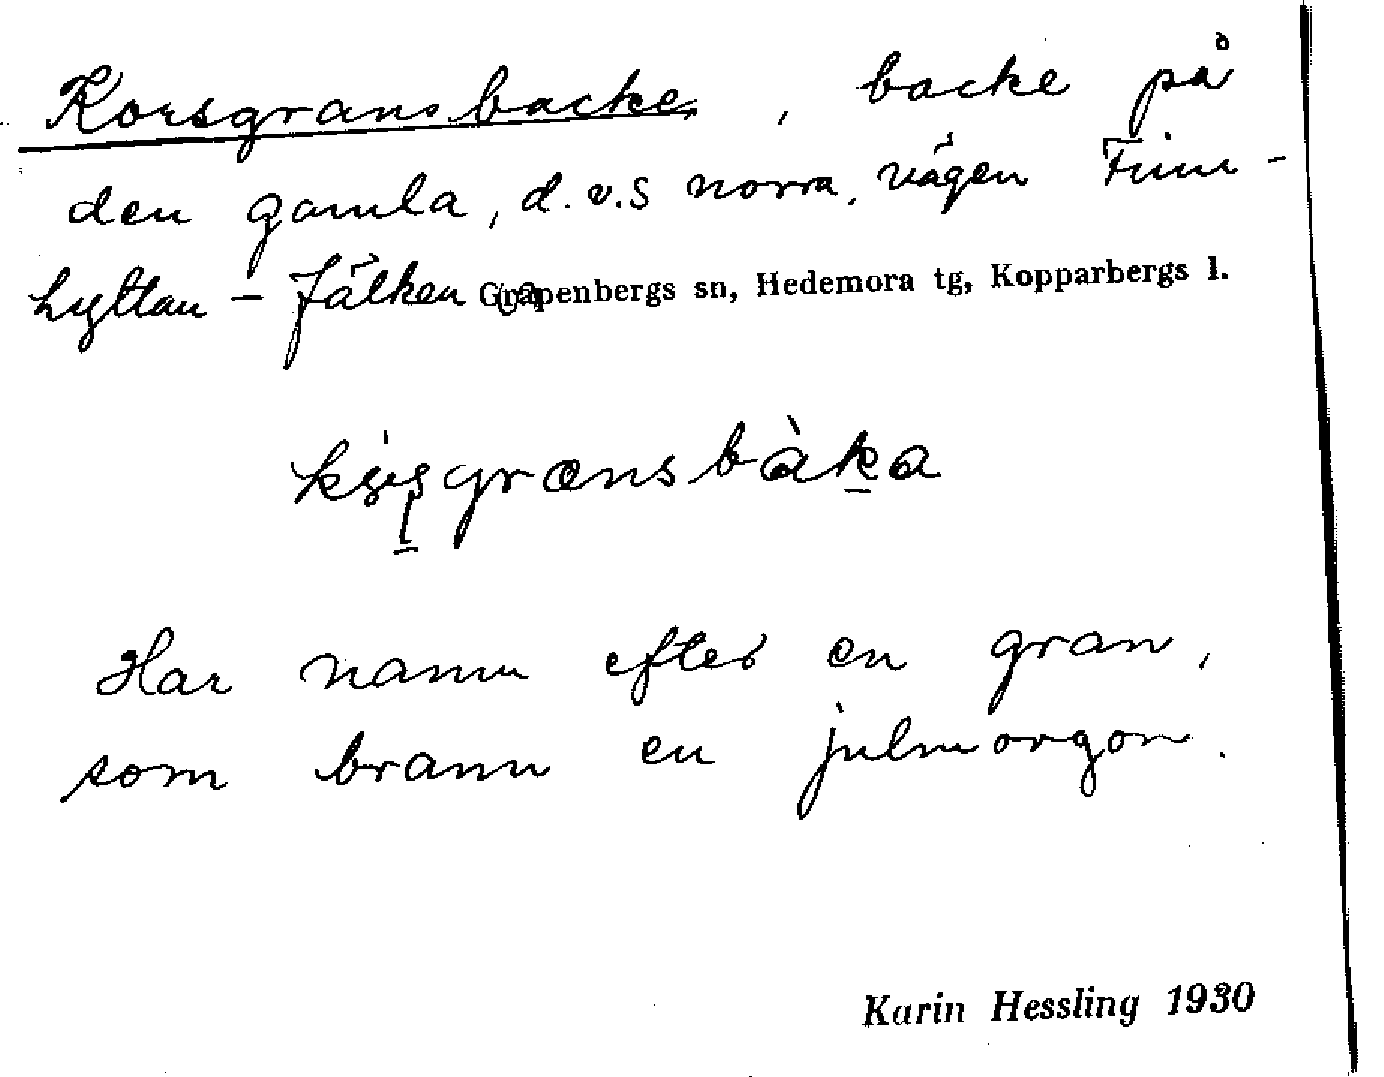 Korsgransbacken, backe på
den gamla, d.v.s norra, vägen Finn-
hyttan - Jälken Garpenbergs sn, Hedemora tg, Kopparbergs l.
Har namn efter en gran,
som brann en julmorgon.
Karin Hessling 1930